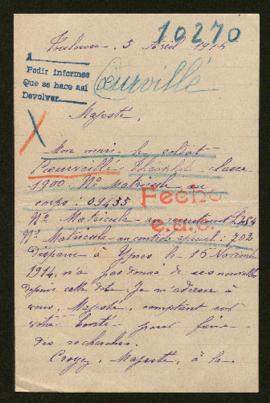 10270
5 Avril 1915
A
Pedir informes
Que se hace así
Devolver
Cœurvillé
Majesté,
X
Mon mari le soldat
Cœurvillé Théophile classe
1900. Nº Matricule au
corps : 09435
Fecho
e.a.c.
Nº Matricule au recrutement
Nº Matricule au contrôle spécial : 702
disparu à Ypres le 15 Novembre
1914, n'a pas donné de ses nouvelles
depuis cette date. Je m'adresse à
vous, Majesté, comptant sur
votre bonté pour faire
des recherches.
Croyez, Majesté, à la